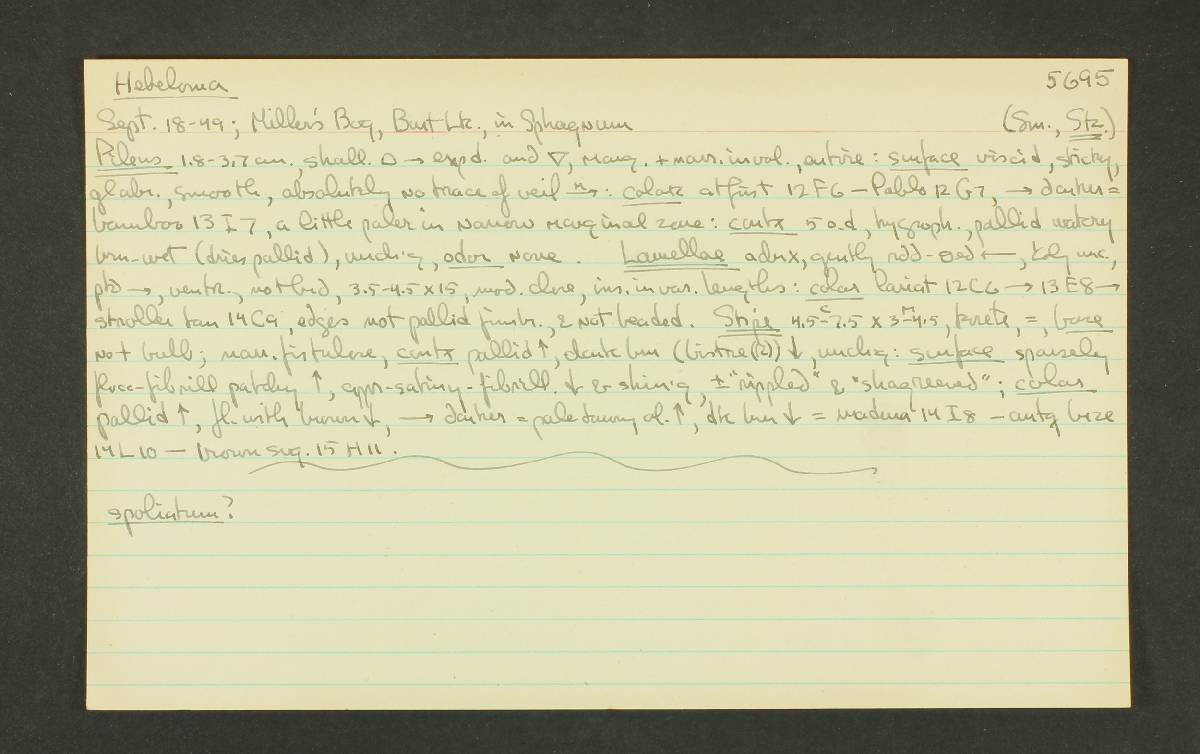 Hebeloma 5695
Sept. 18-49; Miller's Bog, Burt Lk., in Sphagnum (Sm., Stz.)
Pileus 1.8-3.7 cm., shall. ⌓ → expd. and ▽, marg. + narr. invol., entire: surface viscid, sticky,
glabr., smooth, absolutely no trace of veil: color at first 12 F6 — Pablo 12 G7, → darker =
bamboo 13 I 7, a little paler in narrow marginal zone: contx 5 o.d, hygroph., pallid watery
brn-wet (dries pallid), unch'g, odor none. Lamellae adnx, gently rdd- ←,
ptd →, ventr., not brd, 3.5-4.5 x 15, mod. close, ins. in var. lengths: color lariat 12 C6 → 13 E8 →
stroller tan 14 C9, edges not pallid fimbr., & not beaded. Stipe 4.5-7.5 x 3-4.5, terete, =, base
not bulb; narr. fistulose, contx pallid ↑, dark brn (bistre(R)) ↓, unchg: surface sparsely
flocc-fibrill patchy ↑, appr-satiny-fibrill. ↓ & shin'g, ± "rippled" & "shagreened"; color
pallid ↑, fl. with brown ↓, → darker = pale tawny ol. ↑, dk brn ↓ = madura 14 I 8 — antq brze
14 L 10 — brown sug. 15 H 11.
spoliatum?